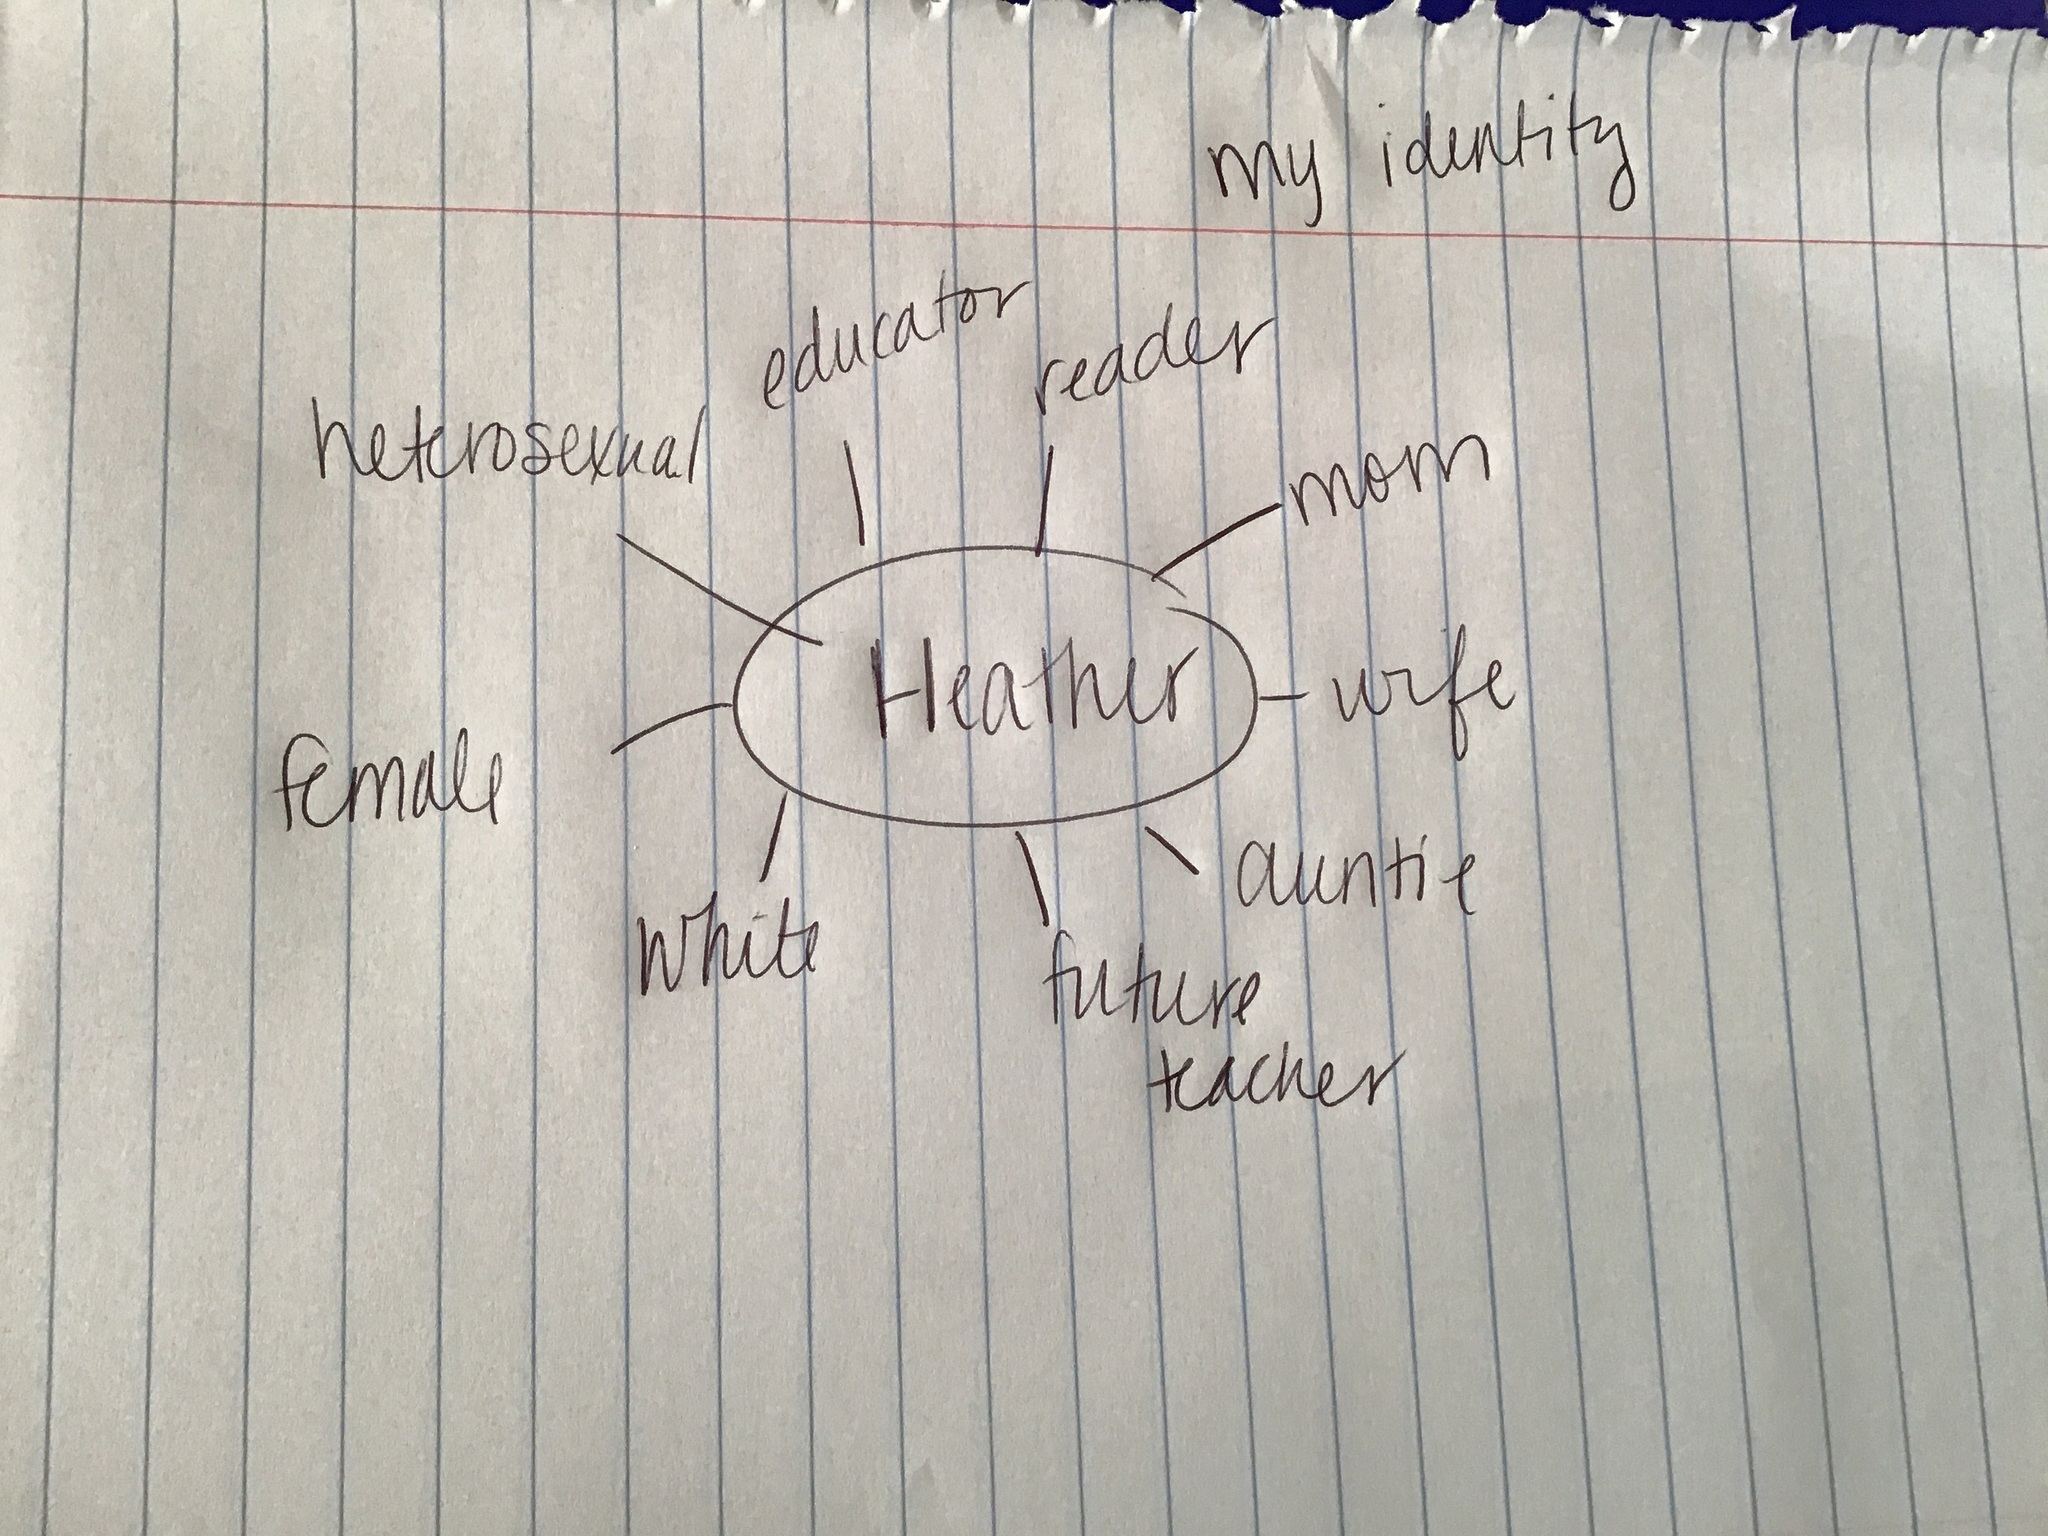 my identity
educator
reader
heterosexual
mom
Heather
wife
female
auntie
white
future
teacher